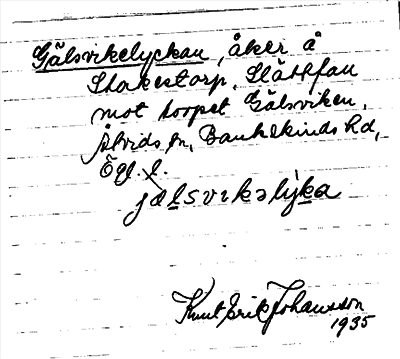 Gälsvikelyckan, åker å
Stakestorp, Slättfall
mot torpet Gälsviken,
Åtvids sn, Bankekinds hd,
Ögl. l.
jælsvikəlyka
Knut Erik Johansson
1935